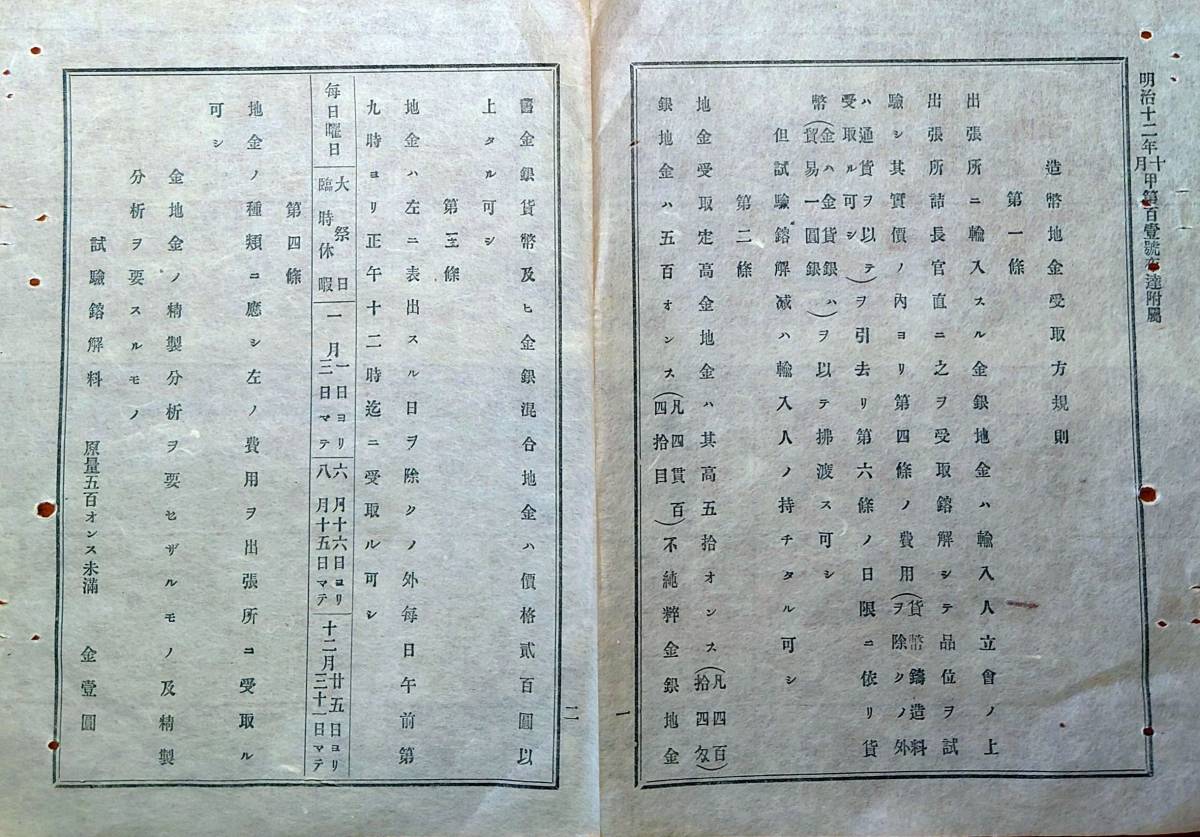 明治十二年十月甲第百壹號布達附屬
造幣地金受取方規則
第一條
出張所ニ輸入スル金銀地金ハ輸入人立會ノ上
出張所詰長官直ニ之ヲ受取鎔解シテ品位ヲ試
驗シ其實價ノ內ヨリ第四條ノ費用(貨幣鑄造料ヲ除クノ外
ハ通貨ヲ以テ)ヲ引去リ第六條ノ日限ニ依リ貨
受取ル可シ
幣(金ハ金貨銀ハ貿易一圓銀)ヲ以テ拂渡ス可シ
但試驗鎔解減ハ輸入人ノ持チタル可シ
第二條
地金受取定高金地金ハ其高五拾オンス(凡四百拾四匁)
銀地金ハ五百オンス(凡四貫百四拾目)不純粹金銀地金
一
二
舊金銀貨幣及ヒ金銀混合地金ハ價格貳百圓以
上タル可シ
第三條
地金ハ左ニ表出スル日ヲ除クノ外每日午前第
九時ヨリ正午十二時迄ニ受取ル可シ
每日曜日
大祭日
臨時休暇
一月一日ヨリ三日マテ
六月十六日ヨリ
八月十五日マテ
十二月廿五日ヨリ三十一日マテ
第四條
地金ノ種類ニ應シ左ノ費用ヲ出張所ニ受取ル
可シ
金地金ノ精製分析ヲ要セザルモノ及精製
分析ヲ要スルモノ
試驗鎔解料 原量五百オンス未滿 金壹圓